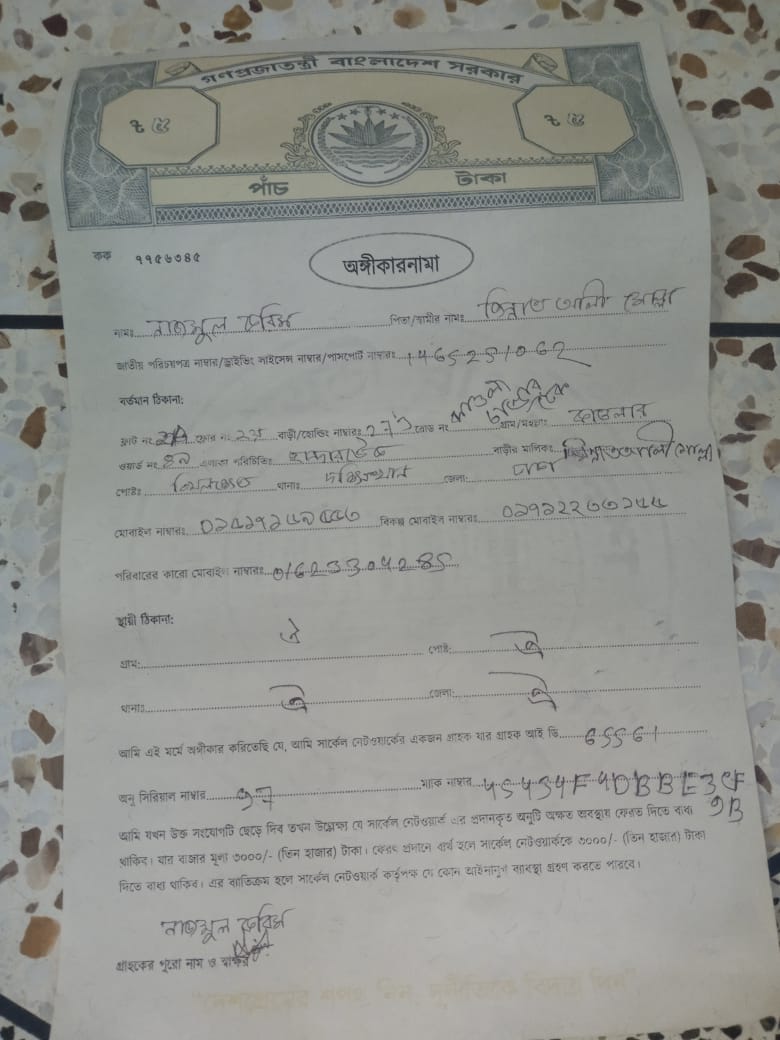 গণপ্রজাতন্ত্রী বাংলাদেশ সরকার
৳ ৫ ৳ ৫
পাঁচ টাকা
কক ৭৭৫৬৩৪৫
অঙ্গীকারনামা
নামঃ নাজমুল করিম পিতা/স্বামীর নামঃ জিন্নাত আলী মোল্লা
জাতীয় পরিচয়পত্র নাম্বার/ড্রাইভিং লাইসেন্স নাম্বার/পাসপোর্ট নাম্বারঃ 1465251062
বর্তমান ঠিকানা:
ফ্লাট নং ফ্লোর নং ২য় বাড়ী/হোল্ডিং নাম্বারঃ রোড নং গ্রাম/মহল্লাঃ কাওলার
ওয়ার্ড নং এলাকা পরিচিতিঃ বাড়ীর মালিকঃ জিন্নাত আলী মোল্লা
পোষ্টঃ খিলক্ষেত থানাঃ দক্ষিণখান জেলা: ঢাকা
মোবাইল নাম্বারঃ বিকল্প মোবাইল নাম্বারঃ
পরিবারের কারো মোবাইল নাম্বারঃ 01623304285
স্থায়ী ঠিকানা:
গ্রাম: ঐ পোষ্ট: ঐ
থানাঃ ঐ জেলা: ঐ
আমি এই মর্মে অঙ্গীকার করিতেছি যে, আমি সার্কেল নেটওয়ার্কের একজন গ্রাহক যার গ্রাহক আই ডি 65561
অনু সিরিয়াল নাম্বার ম্যাক নাম্বার
আমি যখন উক্ত সংযোগটি ছেড়ে দিব তখন উল্লেখ্য যে সার্কেল নেটওয়ার্ক এর প্রদানকৃত অনুটি অক্ষত অবস্থায় ফেরত দিতে বাধ্য 9B
থাকিব। যার বাজার মূল্য ৩০০০/- (তিন হাজার) টাকা। ফেরৎ প্রদানে ব্যর্থ হলে সার্কেল নেটওয়ার্ককে ৩০০০/- (তিন হাজার) টাকা
দিতে বাধ্য থাকিব। এর ব্যতিক্রম হলে সার্কেল নেটওয়ার্ক কর্তৃপক্ষ যে কোন আইনানুগ ব্যবস্থা গ্রহণ করতে পারবে।
নাজমুল করিম
গ্রাহকের পুরো নাম ও স্বাক্ষর
"দেশপ্রেমের শপথ নিন, দুর্নীতিকে বিদায় দিন"